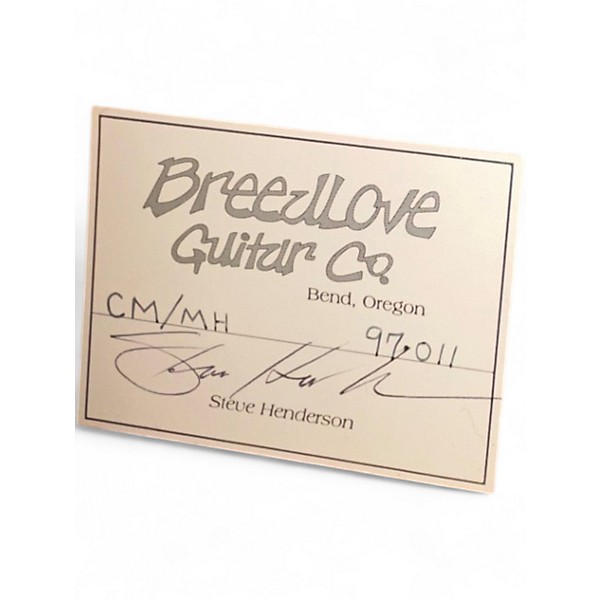 BreedLove
Guitar Co.
Bend, Oregon
CM/MH 97.011
Steve Henderson